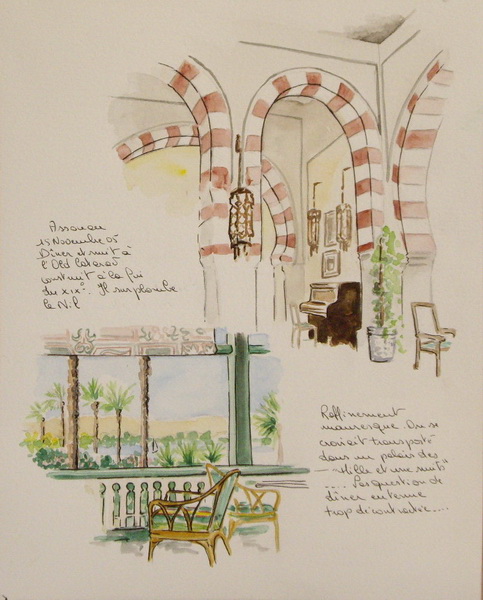 Assouan
15 Novembre 05
Dîner et nuit à
l'Old Cataract
construit à la fin
du XIX°. Il surplombe
le Nil
Raffinement
mauresque. On se
croirait transporté
dans un palais des
"Mille et une nuits"
.... Pas question de
dîner en tenue
trop décontractée....